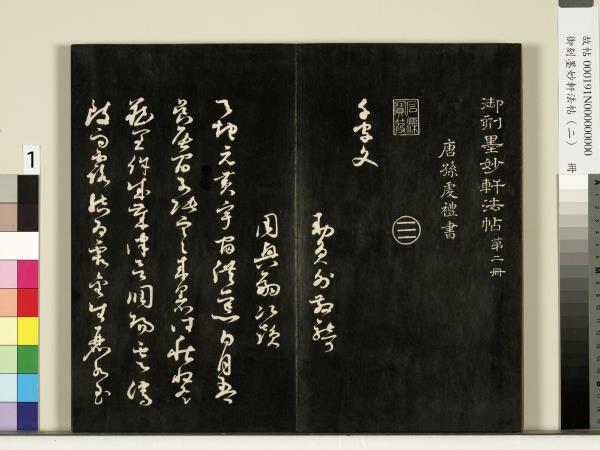 故帖 000191N000000000
御刻墨妙軒法帖（二） 冊
御刻墨妙軒法帖 第二冊
唐孫虔禮書
三
千字文
勅員外散騎
周興嗣次韻
天地元黃宇宙洪荒日月盈
昃辰宿列張寒來暑往秋收冬
藏閏餘成歲律呂調陽雲騰
致雨露結為霜金生麗水玉
1